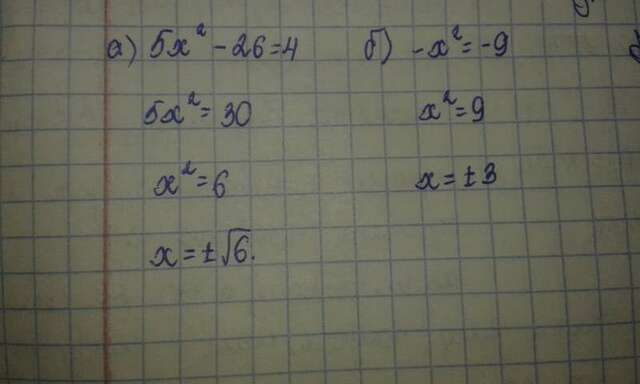 а) 5x² - 26 = 4
5x² = 30
x² = 6
x = ±√6.
б) -x² = -9
x² = 9
x = ±3